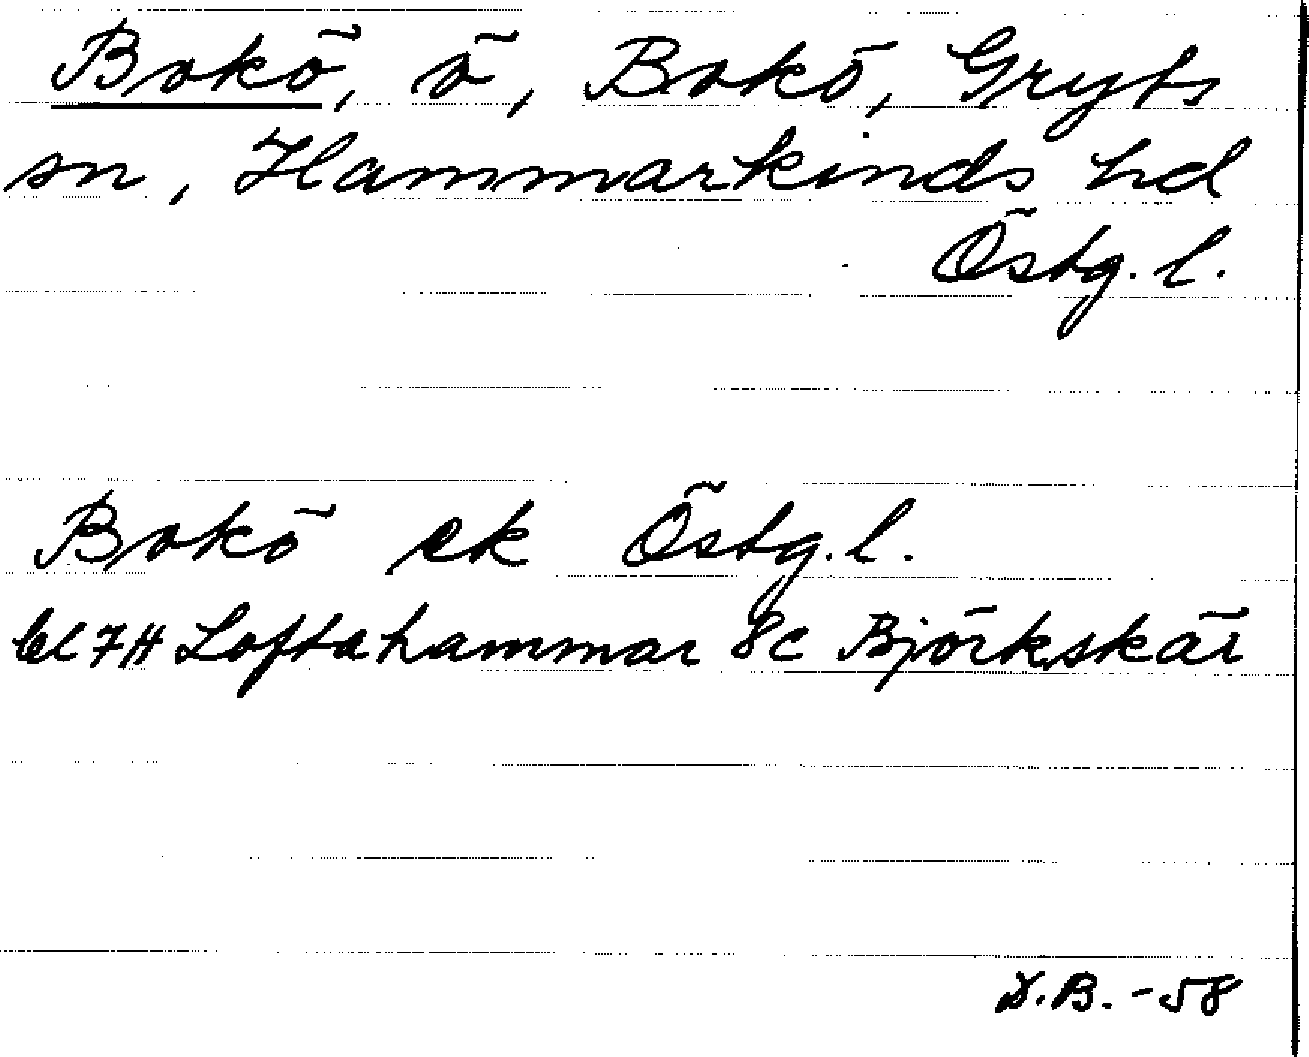 Bokö, ö, Bokö, Gryts
sn, Hammarkinds hd
Östg. l.
Bokö ek Östg. l.
bl 7H Loftahammar 8c Björkskär
B. -58